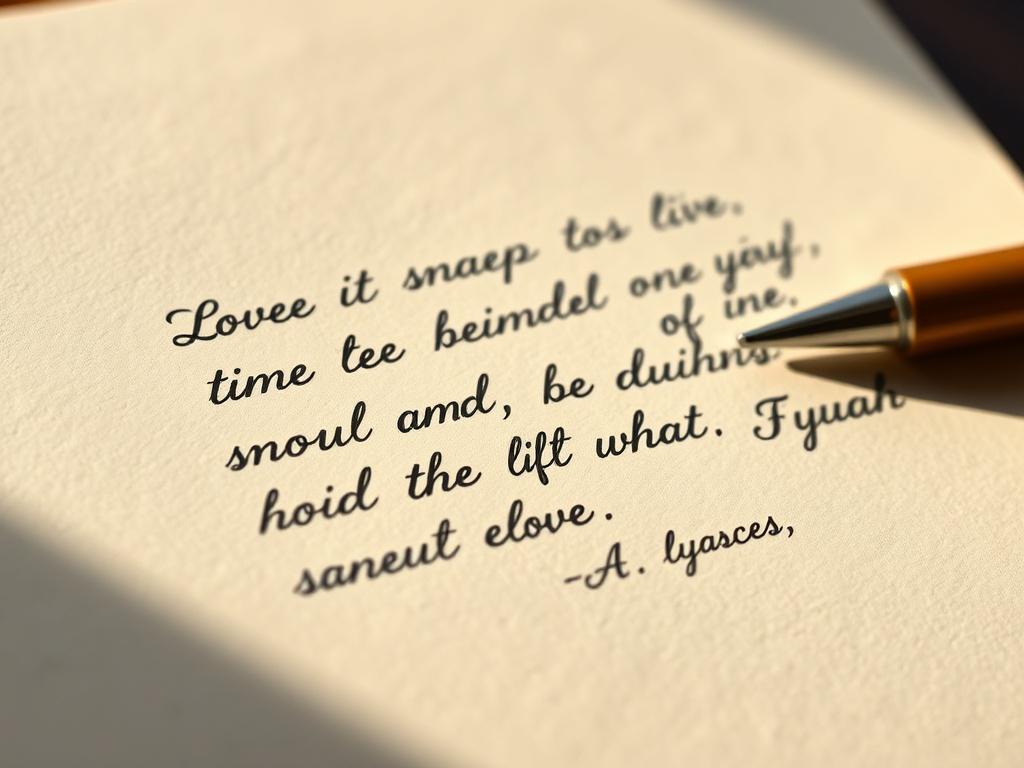 Lovee it snaep tos live,
time tee beimdel one yiayf,
of ine.
snoul amd, be duihns.
hoid the lift what. Fyuah
saneut elove.
-A. lyasces,